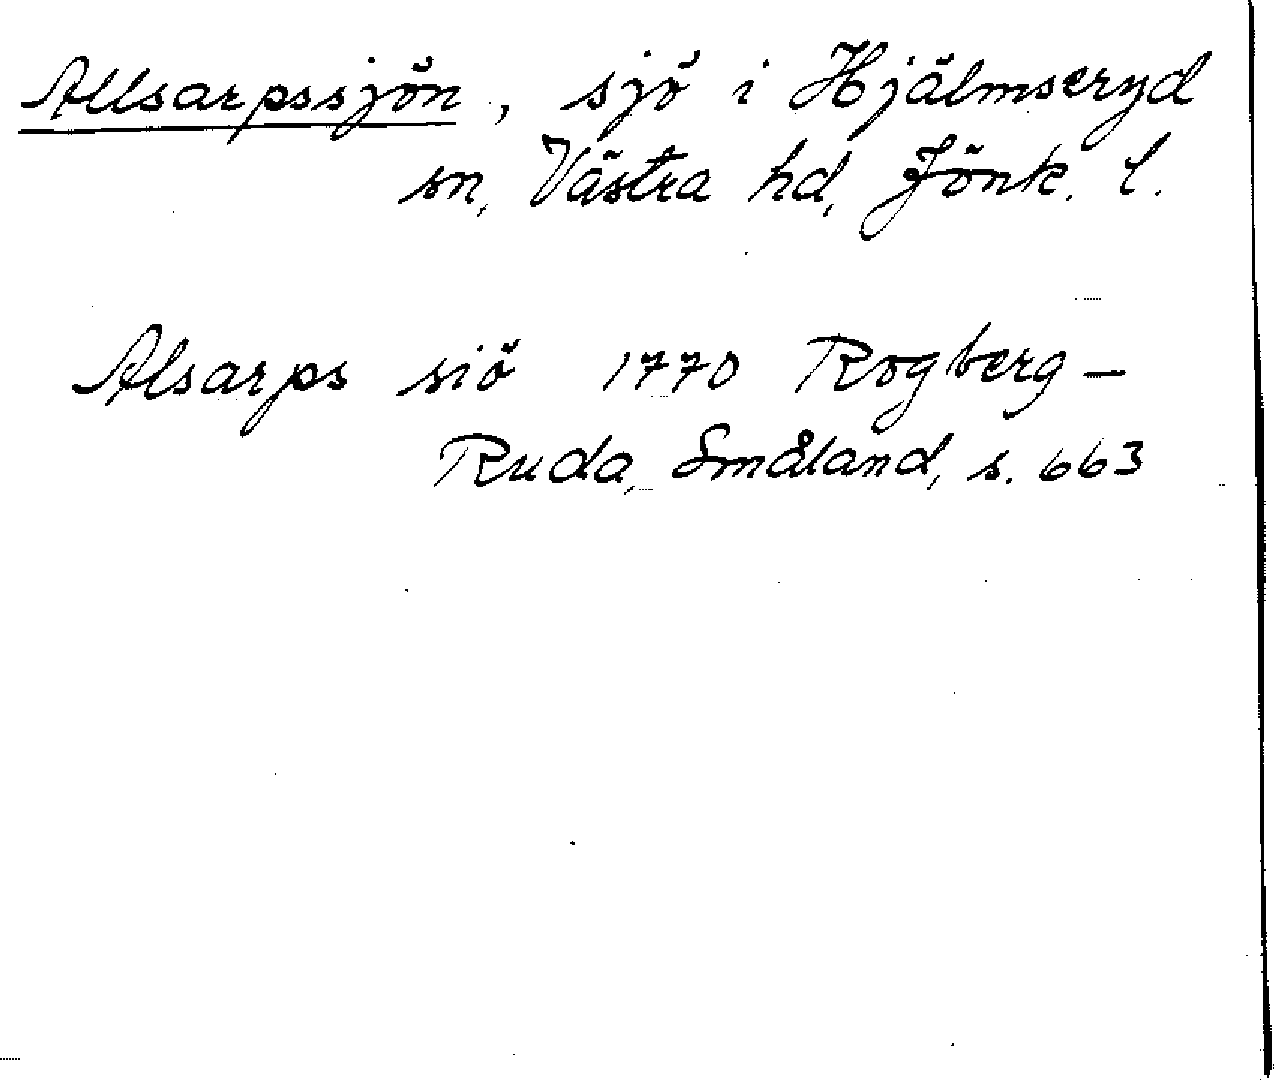 Allsarpssjön, sjö i Hjälmseryd
sn, Västra hd, Jönk. l.
Alsarps siö 1770 Rogberg-
Ruda, Småland, s. 663